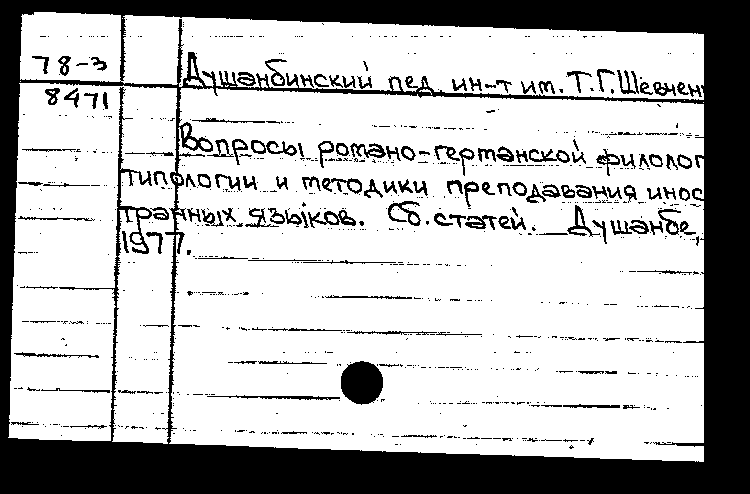 78-3
8471
Душанбинский пед. ин-т им. Т.Г.Шевчен
Вопросы романо-германской филолог
типологии и методики преподавания инос
транных языков. Сб.статей. Душанбе,
1977.